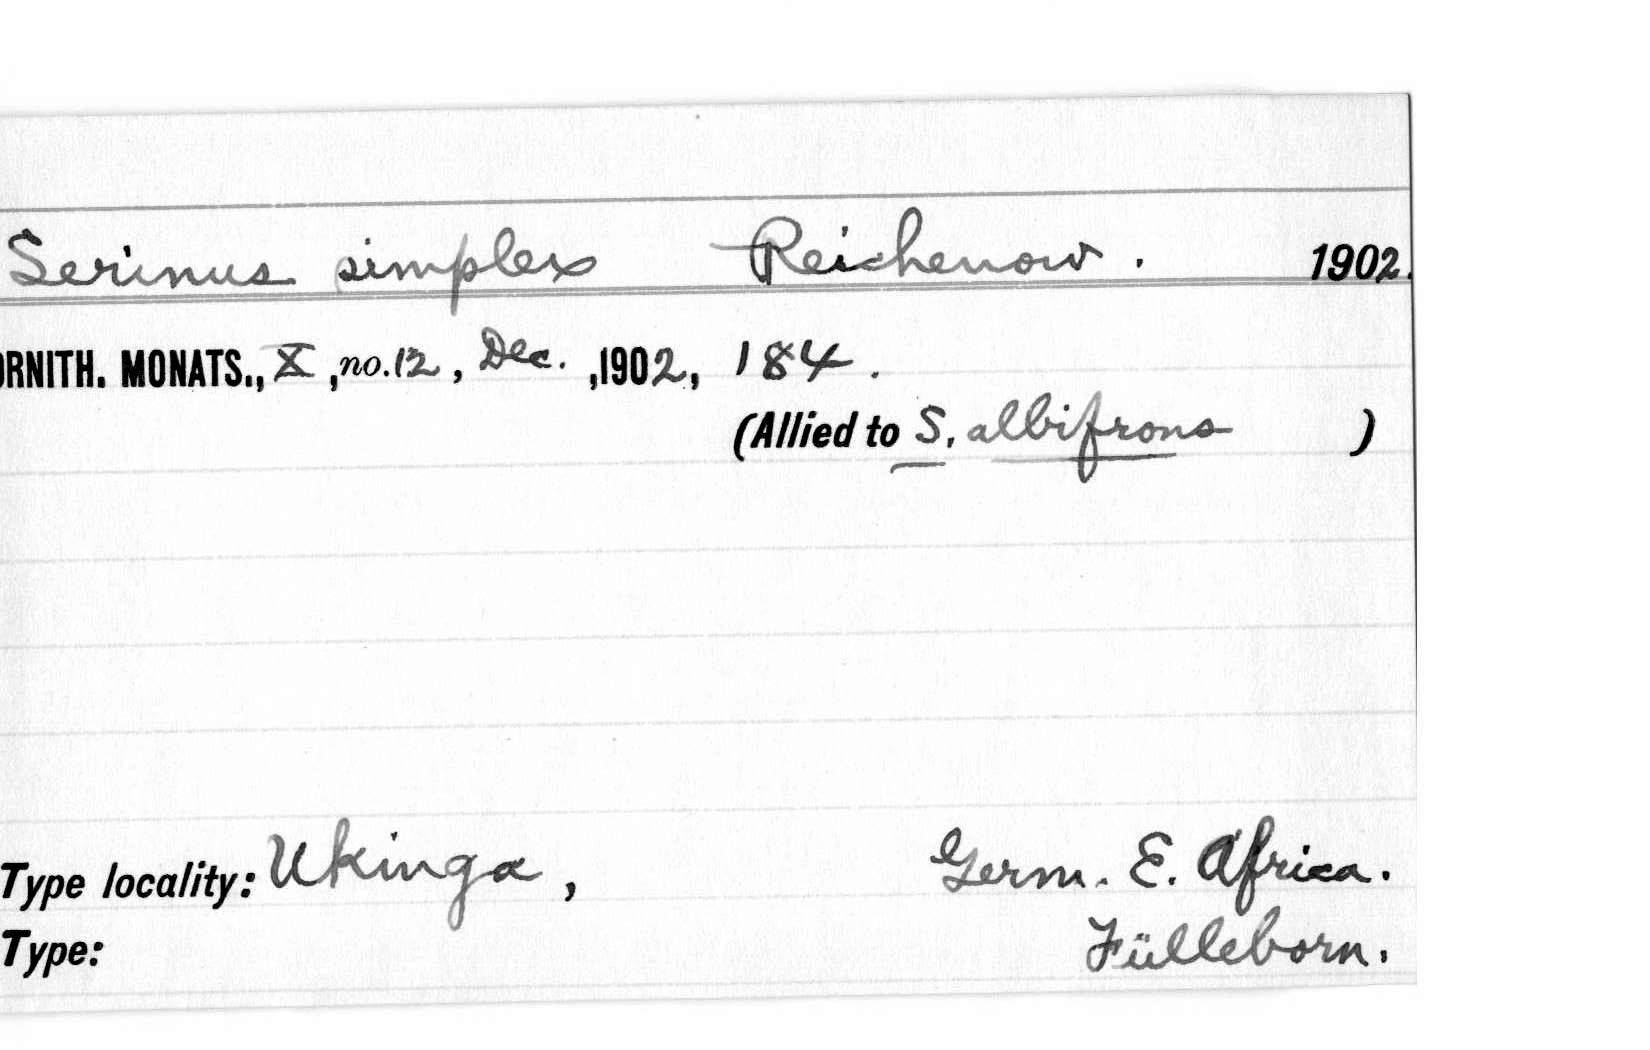 Serinus simplex Reichenow. 1902.
ORNITH. MONATS., X, no. 12, Dec. ,1902, 184.
(Allied to S. albifrons )
Type locality: Ukinga, Germ. E. Africa.
Type: Fülleborn.